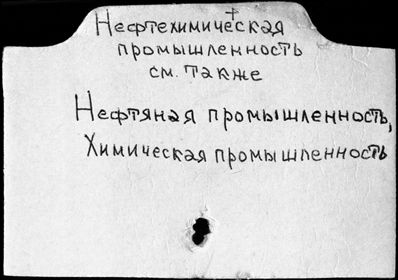 Нефтехимическая
промышленность
см. также
Нефтяная промышленность,
Химическая промышленность